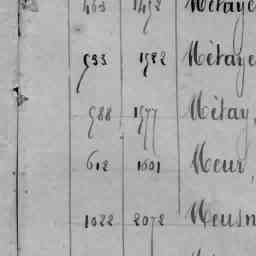 463 1492 Métaye
933 1982 Métaye
988 1977 Métay
612 1601 Meur,
1022 2072 Meusn